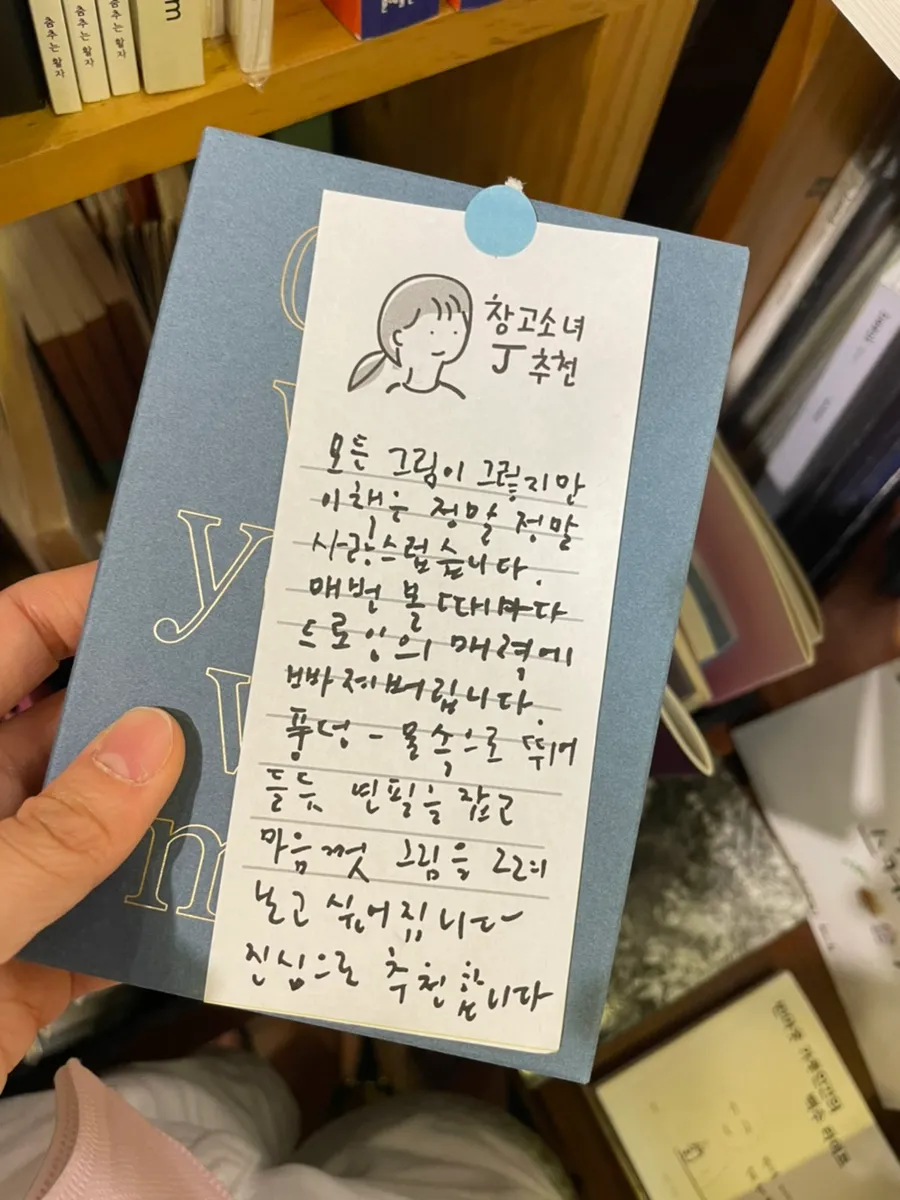 춤추는 활자
춤추는 활자
춤추는 활자
m
창고소녀
J 추천
모든 그림이 그렇지만
이 책은 정말 정말
사랑스럽습니다.
매번 볼 때마다
드로잉의 매력에
빠져버립니다.
풍덩 - 물속으로 뛰어
들듯 연필을 잡고
마음껏 그림을 그리
놀고 싶어집니다
진심으로 추천합니다
y
m